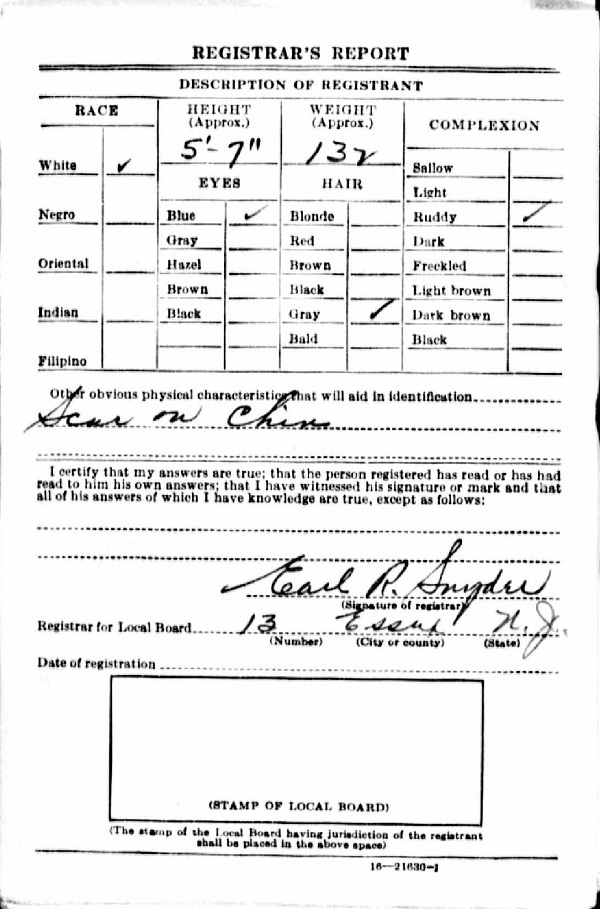 REGISTRAR'S REPORT
DESCRIPTION OF REGISTRANT
RACE
HEIGHT
(Approx.)
WEIGHT
(Approx.)
COMPLEXION
5'-7"
132
White ✓
EYES
HAIR
Sallow
Light
Negro
Blue ✓
Blonde
Ruddy ✓
Gray
Red
Dark
Oriental
Hazel
Brown
Freckled
Brown
Black
Light brown
Indian
Black
Gray ✓
Dark brown
Bald
Black
Filipino
Other obvious physical characteristics that will aid in identification
Scar on Chin
I certify that my answers are true; that the person registered has read or has had
read to him his own answers; that I have witnessed his signature or mark and that
all of his answers of which I have knowledge are true, except as follows:
Earl R. Snyder
(Signature of registrar)
Registrar for Local Board 13 Essex N.J.
(Number) (City or county) (State)
Date of registration
(STAMP OF LOCAL BOARD)
(The stamp of the Local Board having jurisdiction of the registrant
shall be placed in the above space)
16—21630-1